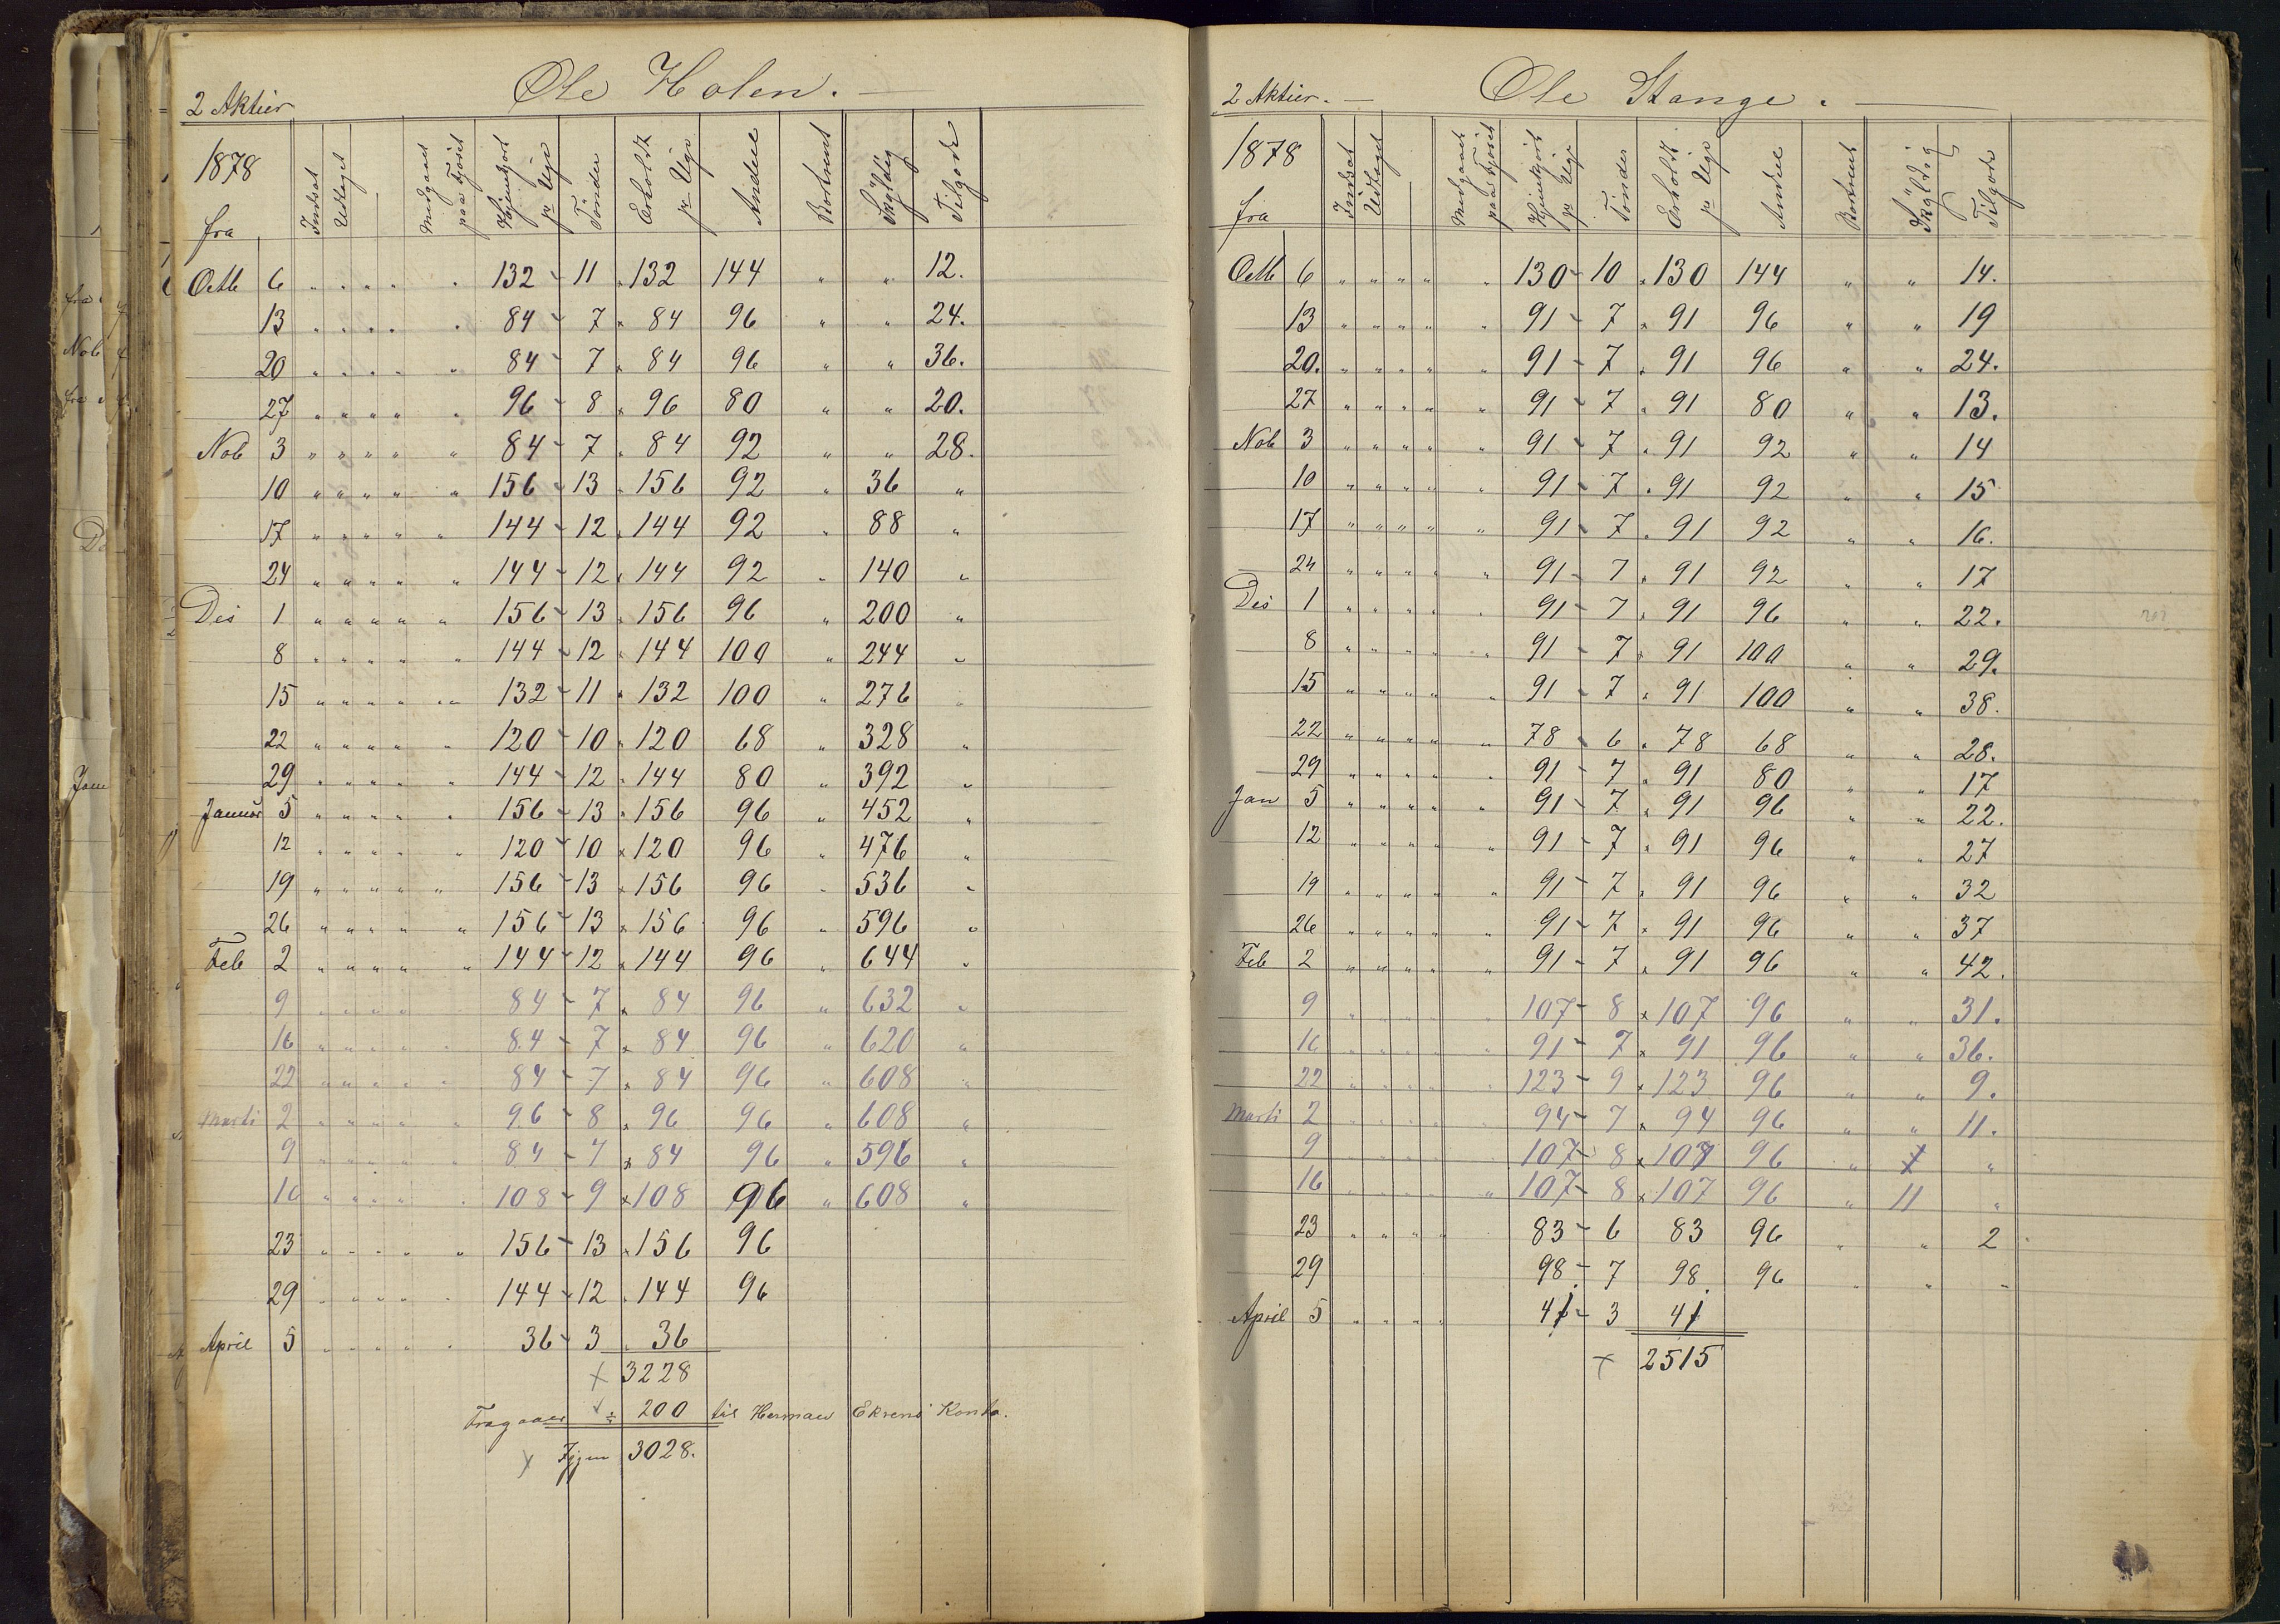 Ole Holen.
2 Aktier
1878
fra
Indsat Udtaget Medgaaet paa Tjöset Hjemkjört pr Uge Tönder Erholdt pr Uge Andel Bortrent Skÿldig Tilgode
Octb 6 " " " " " 132 - 11 " 132 144 " " 12.
13 " " " " " 84 - 7 " 84 96 " " 24.
20 " " " " " 84 - 7 " 84 96 " " 36.
27 " " " " " 96 - 8 " 96 80 " " 20.
Nob 3 " " " " " 84 - 7 " 84 92 " " 28.
10 " " " " " 156 - 13 " 156 92 " 36 "
17 " " " " " 144 - 12 " 144 92 " 88 "
24 " " " " " 144 - 12 " 144 92 " 140 "
Des 1 " " " " " 156 - 13 " 156 96 " 200 "
8 " " " " " 144 - 12 " 144 100 " 244 "
15 " " " " " 132 - 11 " 132 100 " 276 "
22 " " " " " 120 - 10 " 120 68 " 328 "
29 " " " " " 144 - 12 " 144 80 " 392 "
Januar 5 " " " " " 156 - 13 " 156 96 " 452 "
12 " " " " " 120 - 10 × 120 96 " 476 "
19 " " " " " 156 - 13 × 156 96 " 536 "
26 " " " " " 156 - 13 × 156 96 " 596 "
Feb 2 " " " " " 144 - 12 × 144 96 " 644 "
9 " " " " 84 - 7 × 84 96 " 632 "
16 " " " " " 84 - 7 × 84 96 " 620 "
22 " " " " " 84 - 7 × 84 96 " 608 "
Marti 2 " " " " " 96 - 8 × 96 96 " 608 "
9 " " " " " 84 - 7 × 84 96 " 596 "
16 " " " " " 108 - 9 × 108 96 " 608 "
23 " " " " " 156 - 13 " 156 96
29 " " " " " 144 - 12 " 144 96
April 5 " " " " " 36 - 3 " 36
× 3228
Fragaaer ÷ 200 til Herman Ekrens Konto.
× Igjen 3028.
Ole Stange.
2 Aktier.
1878
fra
Indsat Udtaget Medgaaet paa Tjöset Hjemkjört pr Uge Tönder Erholdt pr Uge Andel Bortrent Skÿldig Tilgode
Octb 6 " " " " " 130 - 10 " 130 144 " " 14.
13 " " " " " 91 - 7 " 91 96 " " 19
20. " " " " " 91 - 7 " 91 96 " " 24.
27 " " " " " 91 - 7 " 91 80 " " 13.
Nob 3 " " " " " 91 - 7 " 91 92 " " 14
10 " " " " " 91 - 7 " 91 92 " " 15
17 " " " " " 91 - 7 " 91 92 " " 16.
24 " " " " " 91 - 7 " 91 92 " " 17
Des 1 " " " " " 91 - 7 " 91 96 " " 22.
8 " " " " " 91 - 7 " 91 100 " " 29.
15 " " " " " 91 - 7 " 91 100 " " 38.
22 " " " " " 78 - 6 " 78 68 " " 28.
29 " " " " " 91 - 7 " 91 80 " " 17
Jan 5 " " " " " 91 - 7 " 91 96 " " 22.
12 " " " " " 91 - 7 " 91 96 " " 27
19 " " " " " 91 - 7 " 91 96 " " 32
26 " " " " " 91 - 7 " 91 96 " " 37
Feb 2 " " " " " 91 - 7 " 91 96 " " 42.
9 " " " " " 107 - 8 × 107 96 " " 31.
16 " " " " " 91 - 7 × 91 96 " " 36.
22 " " " " " 123 - 9 × 123 96 " " 9.
Marti 2 " " " " " 94 - 7 × 94 96 " " 11.
9 " " " " " 107 - 8 × 107 96 " "
16 " " " " " 107 - 8 × 107 96 " 11 "
23 " " " " 83 - 6 83 96 " " 2
29 98 - 7 98 96 " " "
April 5 " " " " 41 - 3 41
× 2515